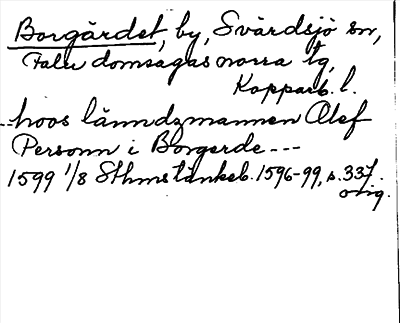 Borgärdet, by, Svärdsjö sn,
Falu domsagas norra tg,
Kopparb. l.
--hoos länndzmannen Olef
Personn i Borgerde---
1599 1/8 Sthms tänkeb. 1596-99, s. 337.
orig.